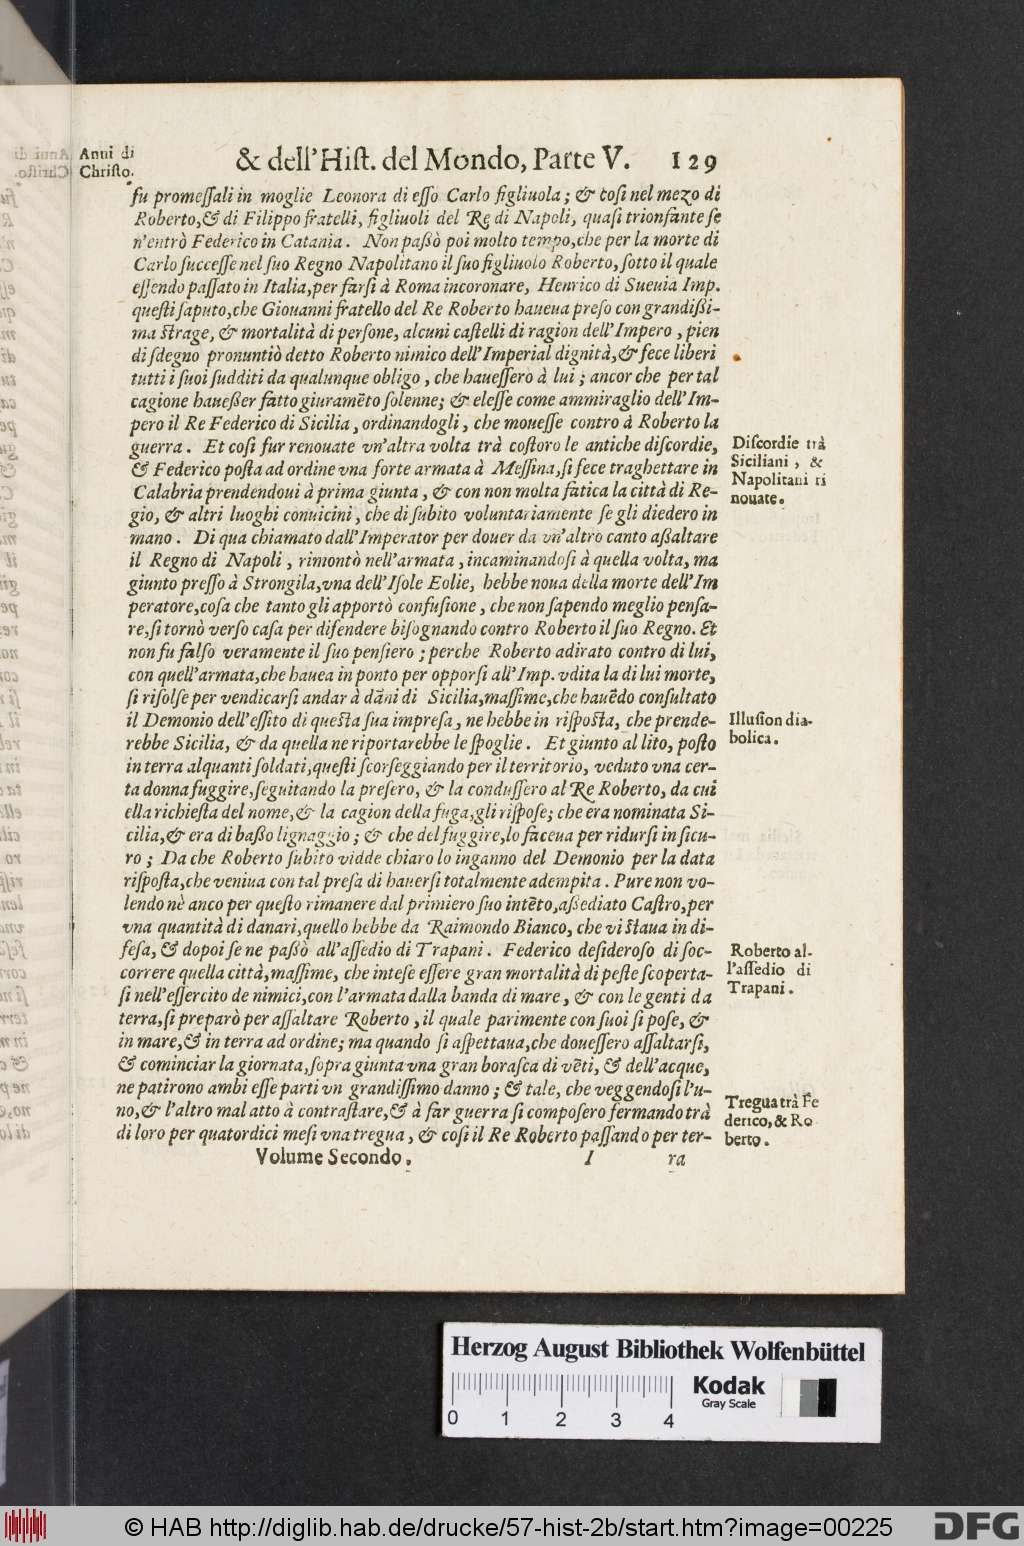 Anni di
Chriſto.
& dell'Hiſt. del Mondo, Parte V. 129
fu promeſſali in moglie Leonora di eſſo Carlo figliuola; & coſi nel mezo di
Roberto,& di Filippo fratelli, figliuoli del Re di Napoli, quaſi trionfante ſe
n'entrò Federico in Catania. Non paßò poi molto tempo,che per la morte di
Carlo ſucceſſe nel ſuo Regno Napolitano il ſuo figliuolo Roberto, ſotto il quale
eſſendo paſſato in Italia,per farſi à Roma incoronare, Henrico di Sueuia Imp.
queſti ſaputo,che Giouanni fratello del Re Roberto haueua preſo con grandißi-
ma ſtrage, & mortalità di perſone, alcuni caſtelli di ragion dell'Impero, pien
di ſdegno pronuntiò detto Roberto nimico dell'Imperial dignità,& fece liberi
tutti i ſuoi ſudditi da qualunque obligo, che haueſſero à lui; ancor che per tal
cagione haueßer fatto giuramẽto ſolenne; & eleſſe come ammiraglio dell'Im-
pero il Re Federico di Sicilia, ordinandogli, che moueſſe contro à Roberto la
guerra. Et coſi fur renouate vn'altra volta trà coſtoro le antiche diſcordie,
& Federico poſta ad ordine vna forte armata à Meſſina,ſi fece traghettare in
Calabria prendendoui à prima giunta, & con non molta fatica la città di Re-
gio, & altri luoghi conuicini, che di ſubito voluntariamente ſe gli diedero in
mano. Di qua chiamato dall'Imperator per douer da vn'altro canto aßaltare
il Regno di Napoli, rimontò nell'armata, incaminandoſi à quella volta, ma
giunto preſſo à Strongila,vna dell'Iſole Eolie, hebbe noua della morte dell'Im
peratore,coſa che tanto gli apportò confuſione, che non ſapendo meglio penſa-
re,ſi tornò verſo caſa per difendere biſognando contro Roberto il ſuo Regno. Et
non fu falſo veramente il ſuo penſiero; perche Roberto adirato contro di lui,
con quell'armata,che hauea in ponto per opporſi all'Imp. vdita la di lui morte,
ſi riſolſe per vendicarſi andar à dãni di Sicilia,maſſime,che hauẽdo conſultato
il Demonio dell'eſſito di queſta ſua impreſa, ne hebbe in riſpoſta, che prende-
rebbe Sicilia, & da quella ne riportarebbe le ſpoglie. Et giunto al lito, poſto
in terra alquanti ſoldati,queſti ſcorſeggiando per il territorio, veduto vna cer-
ta donna fuggire,ſeguitando la preſero, & la conduſſero al Re Roberto, da cui
ella richieſta del nome,& la cagion della fuga,gli riſpoſe; che era nominata Si-
cilia,& era di baßo lignaggio; & che del fuggire,lo faceua per ridurſi in ſicu-
ro; Da che Roberto ſubito vidde chiaro lo inganno del Demonio per la data
riſpoſta,che veniua con tal preſa di hauerſi totalmente adempita. Pure non vo-
lendo nè anco per queſto rimanere dal primiero ſuo intẽto,aßediato Caſtro,per
vna quantità di danari,quello hebbe da Raimondo Bianco, che vi ſtaua in di-
feſa, & dopoi ſe ne paßò all'aſſedio di Trapani. Federico deſideroſo di ſoc-
correre quella città,maſſime, che inteſe eſſere gran mortalità di peſte ſcoperta-
ſi nell'eſſercito de nimici,con l'armata dalla banda di mare, & con le genti da
terra,ſi preparò per aſſaltare Roberto, il quale parimente con ſuoi ſi poſe, &
in mare,& in terra ad ordine; ma quando ſi aſpettaua,che doueſſero aſſaltarſi,
& cominciar la giornata,ſopra giunta vna gran boraſca di vẽti, & dell'acque,
ne patirono ambi eſſe parti vn grandiſſimo danno; & tale, che veggendoſi l'u-
no,& l'altro mal atto à contraſtare,& à far guerra ſi compoſero fermando trà
di loro per quatordici meſi vna tregua, & coſi il Re Roberto paſſando per ter-
Volume Secondo. I ra
Diſcordie trà
Siciliani, &
Napolitani ri
nouate.
Illuſion dia-
bolica.
Roberto al-
l'aſſedio di
Trapani.
Tregua trà Fe
derico, & Ro
berto.
Herzog August Bibliothek Wolfenbüttel
0 1 2 3 4
Kodak
Gray Scale
© HAB http://diglib.hab.de/drucke/57-hist-2b/start.htm?image=00225
DFG